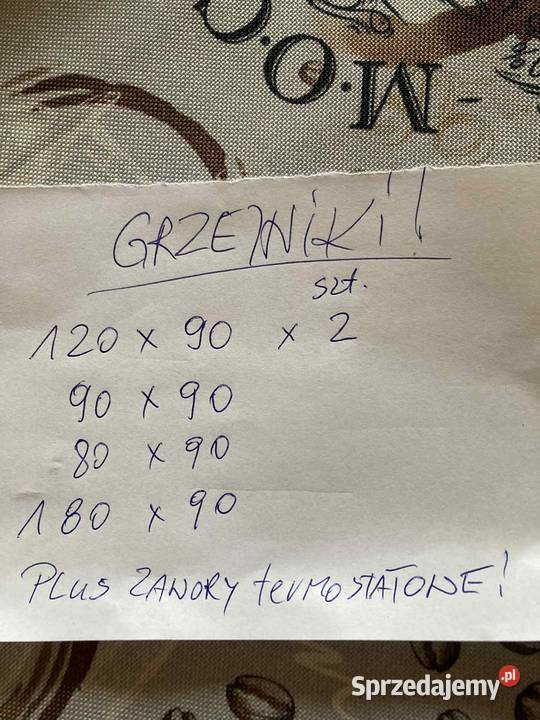 M.O.C
GRZEJNIKI!
szt.
120 x 90 x 2
90 x 90
80 x 90
180 x 90
PLUS ZAWORY termoSTATOWE!
Sprzedajemy.pl